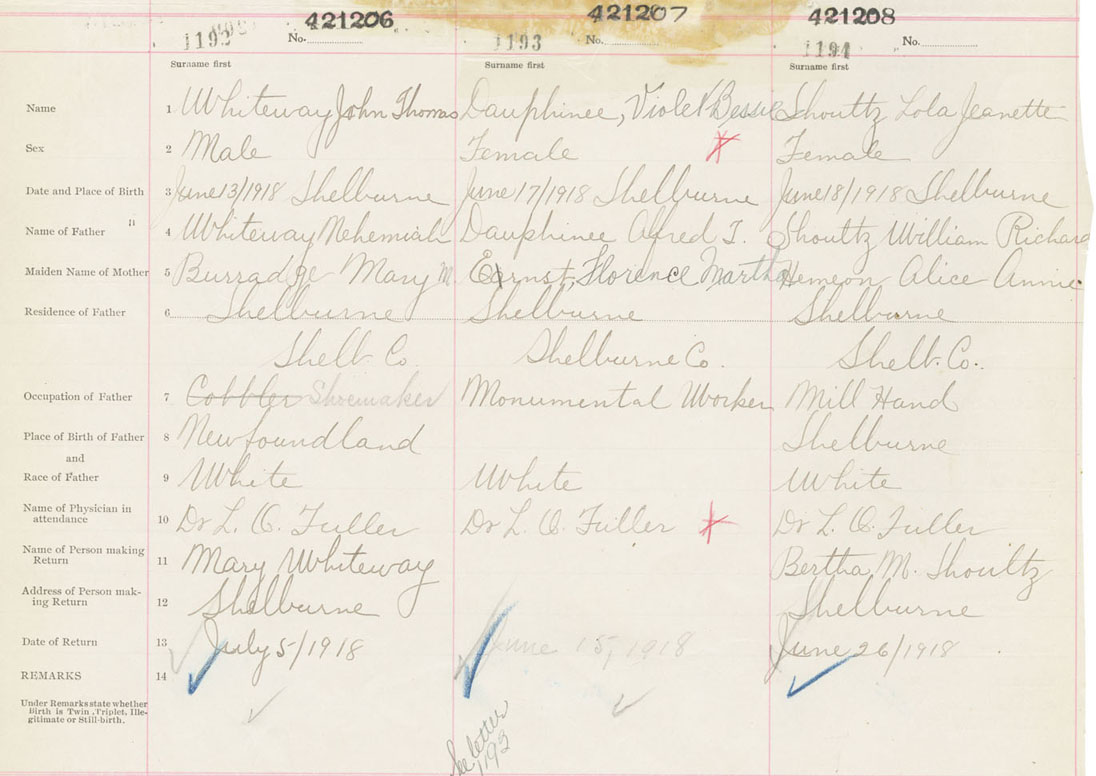 421206 421207 421208
1192 No. 1193 No. 1194 No.
Surname first Surname first Surname first
Name 1 Whiteway John Thomas Dauphinee, Violet Bessie Shouttz Lola Jeanette
Sex 2 Male Female Female
Date and Place of Birth 3 June 13/1918 Shelburne June 17/1918 Shelburne June 18/1918 Shelburne
Name of Father " 4 Whiteway Nehemiah Dauphinee Alfred T. Shouttz William Richard
Maiden Name of Mother 5 Burradge Mary M. Ernst, Florence Martha Hemeon Alice Annie
Residence of Father 6 Shelburne Shelburne Shelburne
Shelb. Co. Shelburne Co. Shelb. Co.
Occupation of Father 7 Cobbler Shoemaker Monumental Worker Mill Hand
Place of Birth of Father 8 Newfoundland Shelburne
and
Race of Father 9 White White White
Name of Physician in
attendance 10 Dr L. O. Fuller Dr L. O. Fuller Dr L. O. Fuller
Name of Person making
Return 11 Mary Whiteway Bertha M. Shouttz
Address of Person mak-
ing Return 12 Shelburne Shelburne
Date of Return 13 July 5/1918 June 15, 1918 June 26/1918
REMARKS 14
Under Remarks state whether
Birth is Twin, Triplet, Ille-
gitimate or Still-birth.
See letter
1193